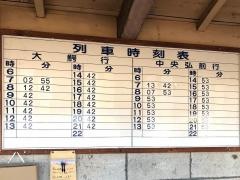 列車時刻表
大鰐行 中央弘前行
時 分 時 分 時 分 時 分
6 14 42 6 14 53
7 02 55 15 42 7 13 42 15 53
8 12 42 16 42 8 07 53 16 53
9 42 17 42 9 53 17 53
10 42 18 42 10 53 18 53
11 42 19 42 11 53 19 53
12 42 20 42 12 53 20 53
13 42 21 13 53 21
22 22